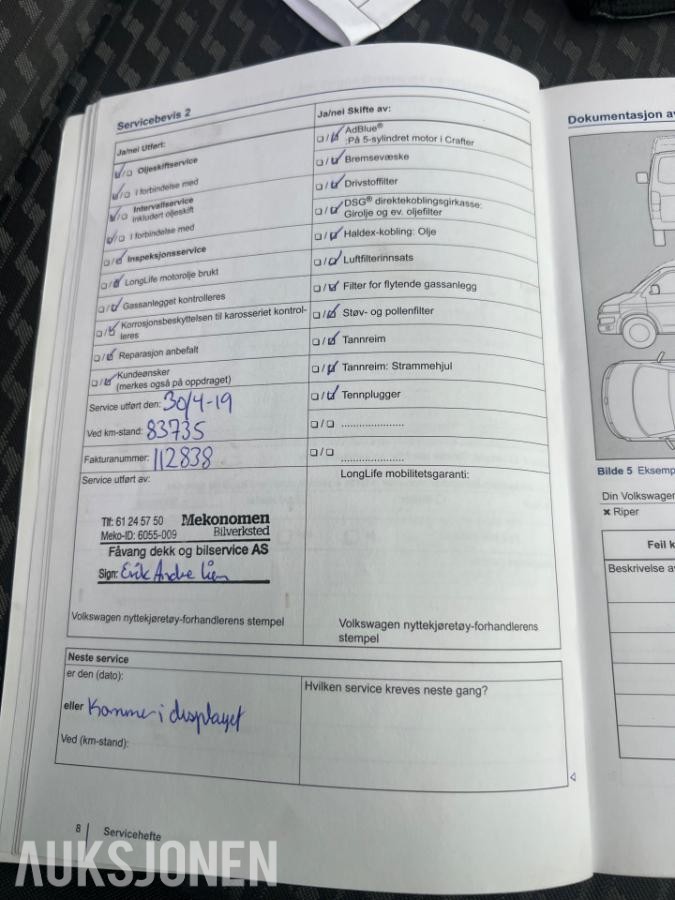 Servicebevis 2
Ja/nei Utført:
Oljeskiftservice
I forbindelse med
Intervallservice
inkludert oljeskift
I forbindelse med
Inspeksjonsservice
LongLife motorolje brukt
Gassanlegget kontrolleres
Korrosjonsbeskyttelsen til karosseriet kontrol-
leres
Reparasjon anbefalt
Kundeønsker
(merkes også på oppdraget)
Service utført den: 30/4-19
Ved km-stand: 83735
Fakturanummer: 112838
Service utført av:
Tlf: 61 24 57 50 Mekonomen
Meko-ID: 6055-009 Bilverksted
Fåvang dekk og bilservice AS
Sign: Erik Andre Lien
Volkswagen nyttekjøretøy-forhandlerens stempel
Ja/nei Skifte av:
AdBlue®
:På 5-sylindret motor i Crafter
Bremsevæske
Drivstoffilter
DSG® direktekoblingsgirkasse:
Girolje og ev. oljefilter
Haldex-kobling: Olje
Luftfilterinnsats
Filter for flytende gassanlegg
Støv- og pollenfilter
Tannreim
Tannreim: Strammehjul
Tennplugger
.....................
.....................
LongLife mobilitetsgaranti:
Volkswagen nyttekjøretøy-forhandlerens
stempel
Neste service
er den (dato):
eller Kommer i displayet
Ved (km-stand):
Hvilken service kreves neste gang?
8 | Servicehefte
Dokumentasjon av
Bilde 5 Eksemp
Din Volkswagen
× Riper
Feil k
Beskrivelse av
AUKSJONEN